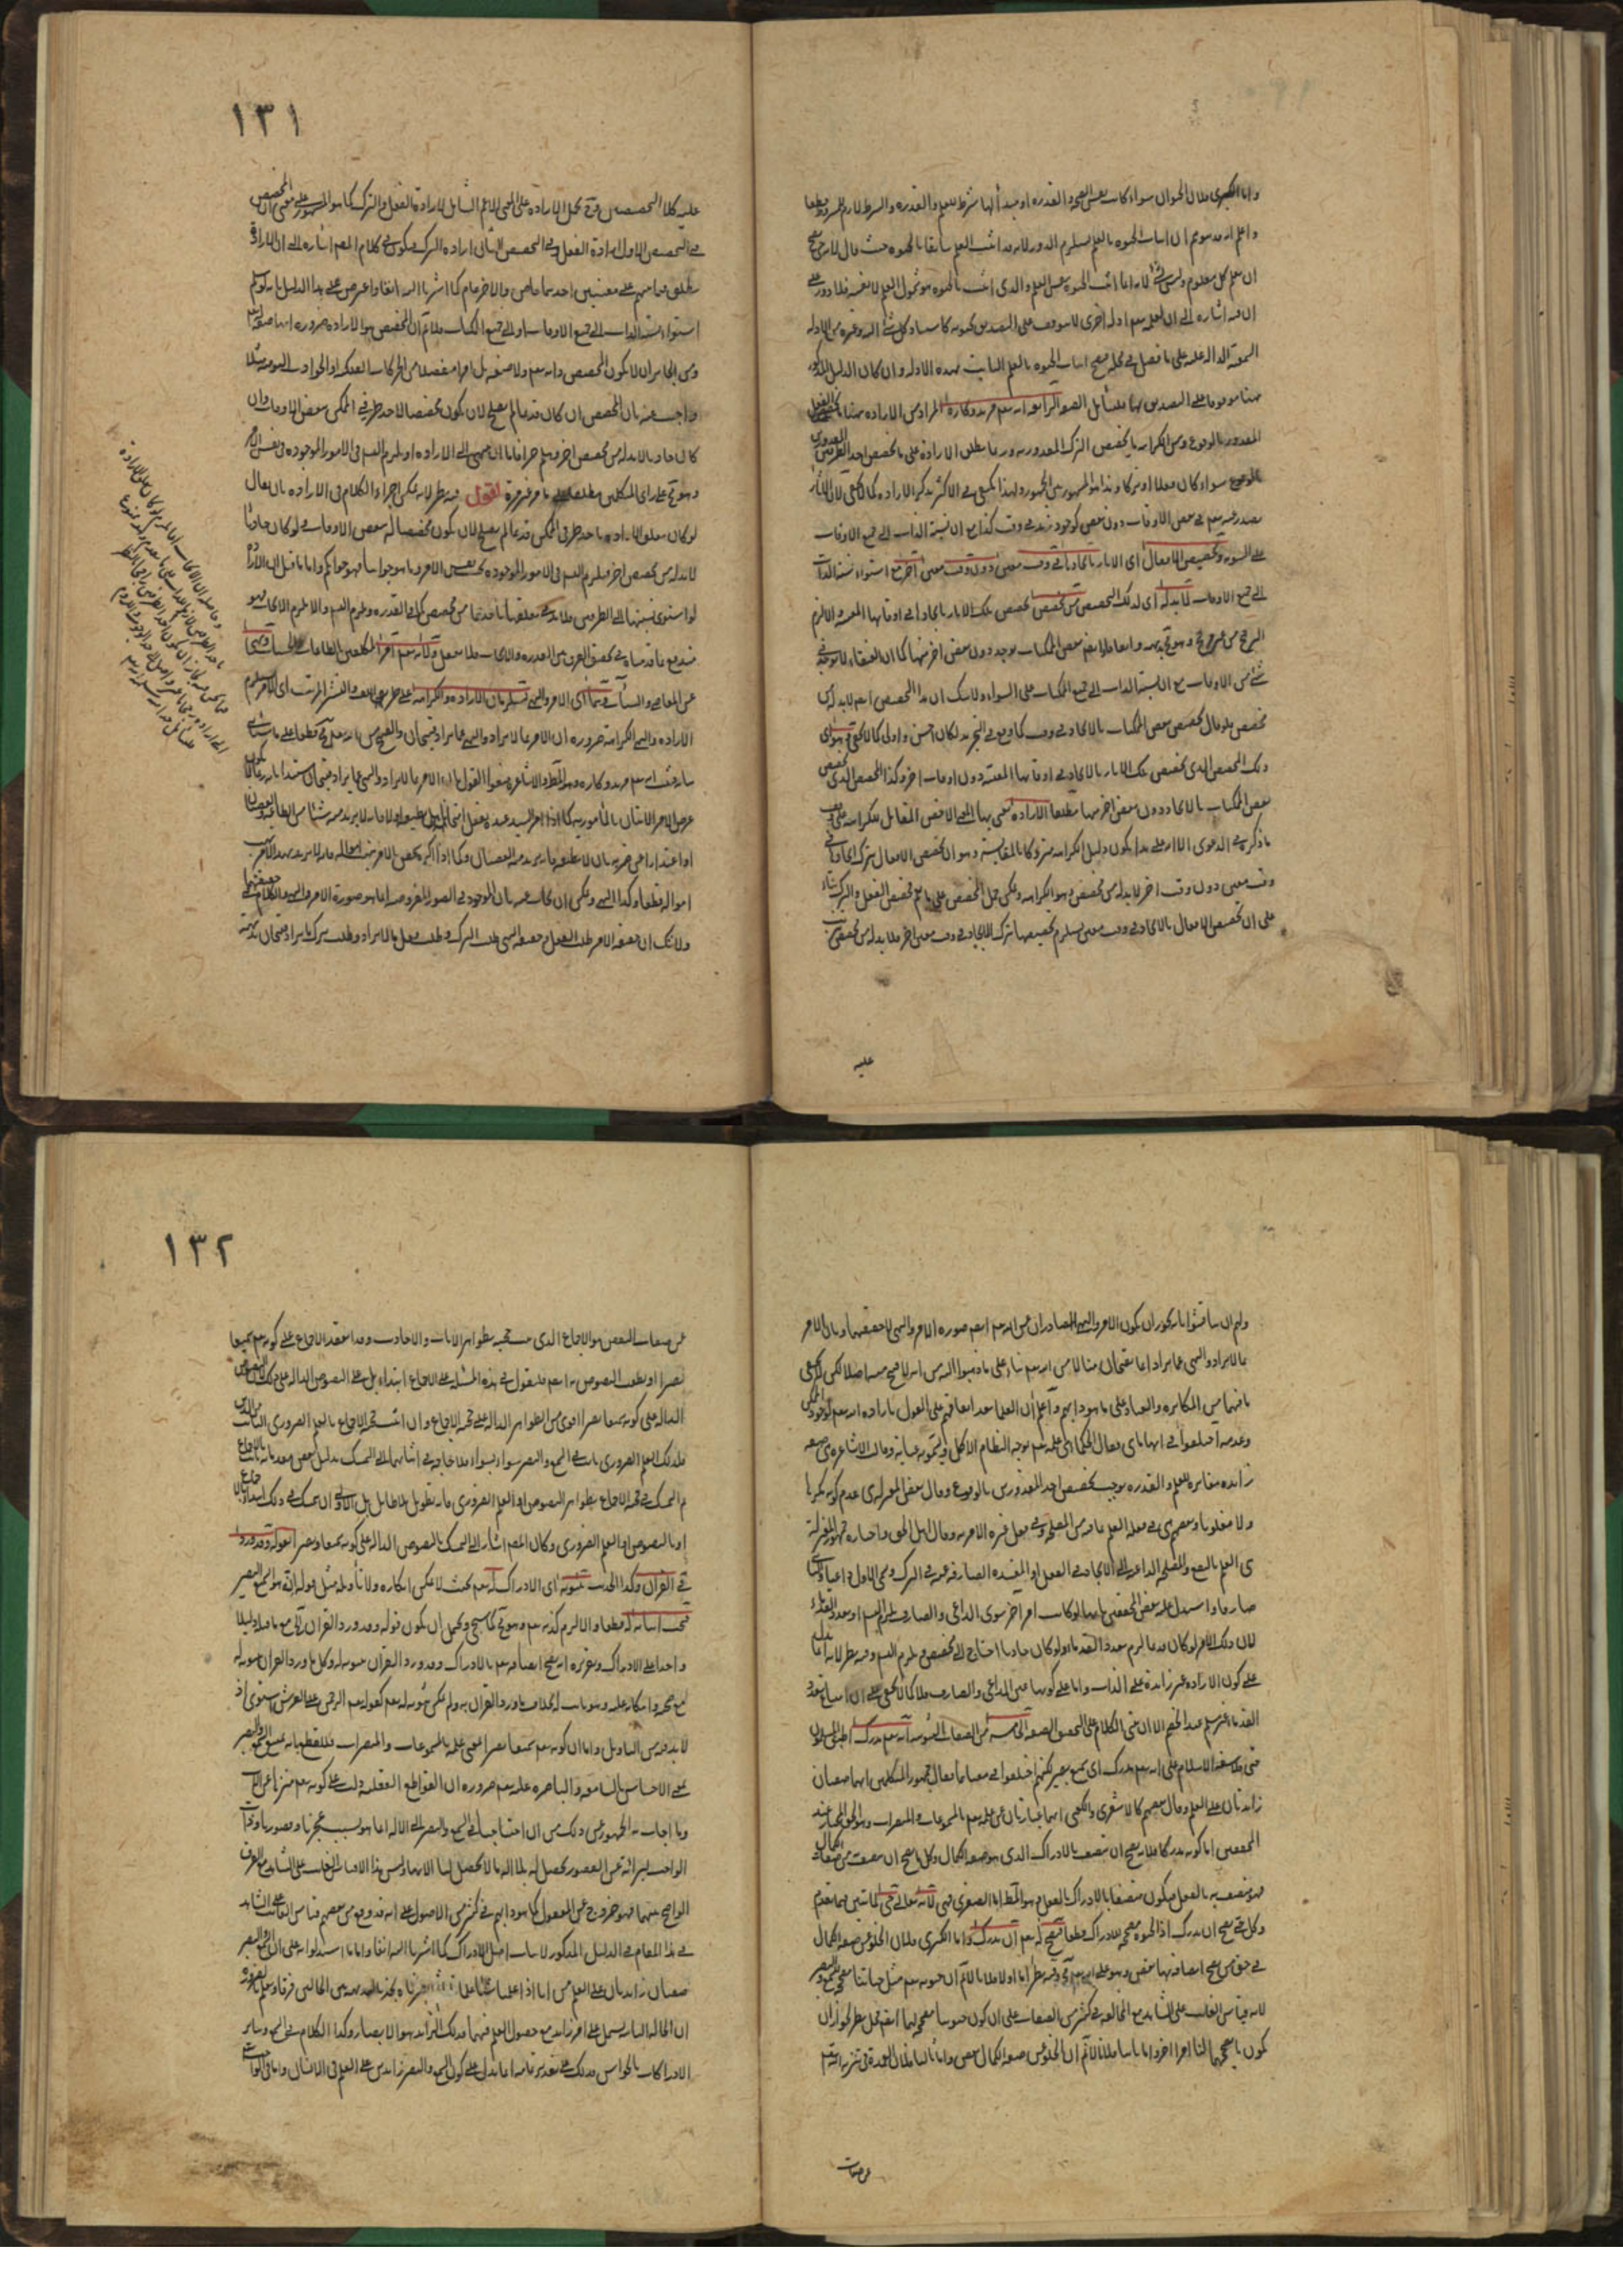 واما الكبرى فلان الحيوة سواء كانت نفس الصحة والقدرة او مبدأ لها شرط للعلم والقدرة والشرط لازم للمشروط قطعا
واعلم انه قد يتوهم ان اثبات الحيوة بالعلم يستلزم الدور لانه قد اثبت العلم سابقا بالحيوة حيث قال لانه حي يصح
ان يعلم كل معلوم وليس بشيء لانه انما اثبت الحيوة بنفس العلم والذي اثبت بالحيوة هو شمول العلم لا نفسه فلا دور على
ان فيه اشارة الى ان لعلمه تعم ادلة اخرى لا يتوقف على التصديق بحيوته كاستناد كل شيء اليه وغيره من الادلة
السمعية الدالة عليه على ما فصل في محله فيصح اثبات الحيوة بالعلم الثابت بهذه الادلة وان كان الدليل المذكور
ههنا موقوفا على التصديق بها فليتأمل الصفة الرابعة انه تعم مريد وكاره المراد من الارادة ههنا تخصيص الفعل
المقدور بالوقوع ومن الكراهة تخصيص الترك المقدور به وربما يطلق الارادة على تخصيص احد الطرفين المقدورين
بالوقوع سواء كان فعلا او تركا وهذا هو المشهور بين الجمهور ولهذا يكتفي في الاكثر بذكر الارادة كما لا يخفى لان الآثار
يصدر عنه تعم في بعض الاوقات دون بعض كوجود زيد في وقت كذا مع ان نسبة الذات الى جميع الاوقات
على السوية وتخصيص الافعال اي الآثار بايجادها في وقت معين دون وقت معين آخر مع استواء نسبة الذات
الى جميع الاوقات لا بد له اي لذلك التخصيص من مخصص يخصص تلك الآثار بايجادها في اوقاتها المعينة والا لزم
الترجيح من غير مرجح وهو مح بديهة وايضا بعض الممكنات يوجد دون بعض آخر منها كما ان العنقاء لا يوجد في
شيء من الاوقات مع ان نسبة الذات الى جميع الممكنات على السواء ولا شك ان هذا التخصيص ايضم لا بد له من
مخصص فلو قال تخصيص بعض الممكنات بالايجاد في وقت كما وقع في التجريد لكان احسن واولى كما لا يخفى وهو اي
ذلك المخصص الذي يخصص تلك الآثار بالايجاد في اوقاتها المعينة دون اوقات اخر وكذا المخصص الذي يخصص
بعض الممكنات بالايجاد دون بعض آخر منها مطلقا الارادة يعني بها المعنى الاخص المقابل للكراهة على وفق
ما ذكره في الدعوى الا انه على هذا يكون دليل الكراهة متروكا بالمقايسة وهو ان تخصيص الافعال بترك ايجادها في
وقت معين دون وقت آخر لا بد له من مخصص هو الكراهة ويمكن حمل التخصيص على ما يعم تخصيص الفعل والترك بناء
على ان تخصيص الافعال بالايجاد في وقت معين يستلزم تخصيصها بترك الايجاد في وقت معين آخر فلا بد له من مخصص
عليه
١٣١
عليه كلا التخصيصين وح يحمل الارادة على المعنى الاعم الشامل لارادة الفعل والترك كما هو المشهور على معنى ان المخصص
في التخصيص الاول ارادة الفعل وفي التخصيص الثاني ارادة الترك فيكون في كلام المصم اشارة الى ان الارادة
يطلق فيما بينهم على معنيين احدهما خاص والآخر عام كما اشرنا اليه آنفا واعترض على هذا الدليل بانه لو سلم
استواء نسبة الذات الى جميع الاوقات او الى جميع الممكنات فلا نم ان المخصص هو الارادة ضرورة
ومن الجائز ان لا يكون المخصص ذاته تعم ولا صفته بل امرا منفصلا من الحركات الفلكية او الحوادث اليومية مثلا
واجيب عنه بان المخصص ان كان قديما لم يصلح لان يكون مخصصا لاحد طرفي الممكن ببعض الاوقات وان
كان حادثا لا بد له من مخصص آخر وهلم جرا فاما ان ينتهي الى الارادة او يلزم التسم في الامور الموجودة في نفس الامر
وهو مح على رأي المتكلمين مطلقا كما مر غير مرة اقول فيه نظر لانه يمكن اجراء الكلام في الارادة بان يقال
لو كان تعلق الارادة باحد طرفي الممكن قديما لم يصلح لان يكون مخصصا له ببعض الاوقات ولو كان حادثا
لا بد له من مخصص آخر فيلزم التسم في الامور الموجودة بحسب نفس الامر وما هو جوابنا فهو جوابكم واما ما قيل ان الارادة
لو استوى نسبتها الى الطرفين فلا بد في تعلقها باحدهما من مخصص كما في القدرة ويلزم التسم والا يلزم الايجاب فهو
مندفع بما قدمناه في تحقيق الفرق بين القدرة والايجاب فلا تغفل ولانه تعم امر المكلفين بالطاعات والحسنات ونهاهم
عن المعاصي والسيئات وهما اي الامر والنهي يستلزمان الارادة والكراهة على طريق اللف والنشر المرتب اي الامر يستلزم
الارادة والنهي الكراهة ضرورة ان الامر بما لا يراد والنهي عما يراد قبيحان والقبيح من الله تعم مح قطعا على ما سيأتي
بيانه فثبت انه تعم مريد وكاره وهو المط والاشاعرة منعوا القول بان الامر بما لا يراد والنهي عما يراد قبيحان مستندا بانه ربما لا يكون
غرض الآمر الاتيان بالمأمور به كما اذا امر السيد عبده بفعل امتحانا هل يطيعه اولا فانه لا يريد منه شيئا من الطاعة والعصيان
او اعتذارا عن ضربه بان لا يطيعه فانه يريد منه العصيان وكما اذا اكره شخص بالامر بنهب امواله فانه لا يريد نهب
امواله قطعا وكذا النهي ويمكن ان يجاب عنه بان الموجود في الصور المفروضة انما هو صورة الامر والنهي والكلام في حقيقتهما
ولا شك ان حقيقة الامر طلب الفعل وحقيقة النهي طلب الترك وطلب فعل ما لا يراد وطلب ترك ما يراد قبيحان بديهة
ولهم ان يناقشوا بانه يجوز ان يكون الامر والنهي الصادران عن الله تعم ايضم صورة الامر والنهي لا حقيقتهما وبان الامر
بما لا يراد والنهي عما يراد انما يقبحان منا لا من الله تعم بناء على ما ذهبوا اليه من انه لا قبيح منه اصلا لكن لا يخفى
ما فيهما من المكابرة والعناد على ما هو دابهم واعلم ان العلماء بعد اتفاقهم على القول بارادة الله تعم لوجود الممكن
وعدمه اختلفوا في انها ما هي فقال الحكماء هي علمه تعم بوجه النظام الاكمل ويسمونه عناية وقال الاشاعرة هي صفة
زائدة مغايرة للعلم والقدرة يوجب تخصيص احد المقدورين بالوقوع وقال بعض المعتزلة هي عدم كونه مكرها
ولا مغلوبا وبعضهم هي في فعله العلم بما فيه من المصلحة وفي فعل غيره الامر به وقال اهل الحق واختاره جمهور المعتزلة
هي العلم بالنفع والمصلحة الداعية الى الايجاد في الفعل او المفسدة الصارفة عنه في الترك ويسمى الاول داعيا والثاني
صارفا واستدل عليه بعض المحققين بانها لو كانت امرا آخر سوى الداعي والصارف لزم التسم او تعدد القدماء
لان ذلك الامر لو كان قديما لزم تعدد القدماء ولو كان حادثا احتاج الى مخصص ويلزم التسم وفيه نظر لانه انما يدل
على كون الارادة غير زائدة على الذات واما على كونها عين الداعي والصارف فلا كما لا يخفى على ان امتناع تعدد
القدماء غير مسلم عند الخصم الا ان يبتني الكلام على التحقيق الصفة الخامسة من الصفات الثبوتية انه تعم مدرك اطبق المسلمون
حتى فلاسفة الاسلام على انه تعم مدرك اي سميع بصير لكنهم اختلفوا في معناهما فقال جمهور المتكلمين انهما صفتان
زائدتان على العلم وقال بعضهم كالاشعري والكعبي انهما عبارتان عن علمه تعم بالمسموعات والمبصرات وهو الحق المختار عند
المحققين اما كونه مدركا فلانه يصح ان يتصف بالادراك الذي هو صفة الكمال وكل ما يصح ان يتصف به من صفات الكمال
فهو متصف به بالفعل فيكون متصفا بالادراك بالفعل وهو المط اما الصغرى فهي لانه تعالى حي لما تبين فيما تقدم
وكل حي يصح ان يدرك اذ الحيوة مصححة للادراك قطعا فيصح له تعم ان يدرك واما الكبرى فلان الخلو عن صفة الكمال
في حق من يصح اتصافه بها نقص وهو على الله تعم مح وفيه نظر اما اولا فلانا لا نم ان حيوته تعم مثل حياتنا مصححة للسمع والبصر
لانه قياس الغائب على الشاهد مع المخالفة في كثير من الصفات على ان كون حيوتنا مصححة لهما ايضم محل نظر لجواز ان
يكون ما يصححهما فينا امرا آخر واما ثانيا فلانا لا نم ان الخلو عن صفة الكمال نقص واما ثالثا فلان العمدة في تنزيه الله تعم
عن صفات
١٣٢
عن صفات النقص هو الاجماع الذي حجيته بظواهر الآيات والاحاديث وقد انعقد الاجماع على كونه تعم سميعا
بصيرا او نطقت النصوص به ايضم فليعول في هذه المسئلة على الاجماع ابتداء بل على النصوص الدالة على ذلك لان النصوص
الدالة على كونه سميعا بصيرا اقوى من الظواهر الدالة على حجية الاجماع وان اثبت حجية الاجماع بالعلم الضروري الثابت من الدين
فذلك العلم الضروري ثابت في السمع والبصر سواء بسواء فلا حاجة في اثباتهما الى التمسك بدليل بعض مقدماته بالاجماع
ثم التمسك في حجية الاجماع بظواهر النصوص او العلم الضروري فانه تطويل بلا طائل بل الاولى ان يتمسك في ذلك ابتداء بالاجماع
او بالنصوص او العلم الضروري وكان المصم اشار الى التمسك بالنصوص الدالة على كونه سميعا وبصيرا بقوله وقد ورد
في القرآن وكذا الحديث ثبوته اي الادراك له تعم بحيث لا يمكن انكاره ولا تأويله مثل قوله انه هو السميع البصير
فيجب اثباته له قطعا والا لزم كذبه تعم وهو مح كما سيجيء ويحتمل ان يكون قوله وقد ورد القرآن الخ مع ما قبله دليلا
واحدا على الادراك وتقريره انه يصح اتصافه تعم بالادراك وقد ورد القرآن بثبوته له وكل ما ورد القرآن بثبوته له
مع صحته وامكانه عليه فهو ثابت له بخلاف ما ورد القرآن به ولم يمكن ثبوته له تعم كقوله تعم الرحمن على العرش استوى اذ
لا بد فيه من التأويل واما ان كونه تعم سميعا بصيرا بمعنى علمه بالمسموعات والمبصرات فللقطع بانه يمتنع السمع والبصر
بمعنى الاحساس بالسامعة والباصرة عليه تعم ضرورة ان القواطع العقلية دلت على كونه تعم منزها عن الآلات
وما اجاب به الجمهور عن ذلك من ان احتياجنا في السمع والبصر الى الآلة انما هو بسبب عجزنا وقصورنا وذات
الواجب لبرائته عن القصور يحصل له بلا آلة ما لا يحصل لنا الا بها وليس هذا الا قياس الغائب على الشاهد مع الفرق
الواضح بينهما فهو خروج عن المعقول كما هو دابهم في كثير من الاصول على انه قد وقع من بعضهم قياس الغائب على الشاهد
في هذا المقام في الدليل المذكور لاثبات اصل الادراك كما اشرنا اليه آنفا واما ما استدلوا به على ان السمع والبصر
صفتان زائدتان على العلم من انا اذا علمنا شيئا علما ثم ابصرناه نجد بالبديهة بين الحالتين فرقا ونعلم بالضرورة
ان الحالة الثانية يشتمل على امر زائد مع حصول العلم فيهما فذلك الزائد هو الابصار وكذا الكلام في السمع وسائر
الادراكات بالحواس فذلك على تقدير تمامه انما يدل على كون السمع والبصر زائدين على العلم في الانسان واما في الواجب